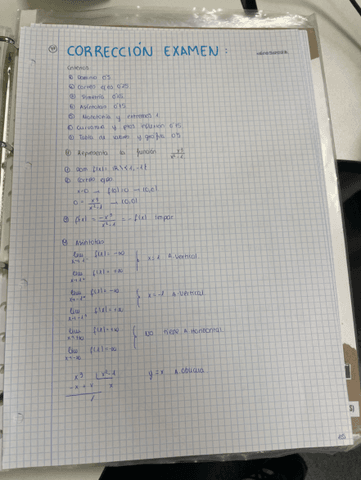 CORRECCIÓN EXAMEN:
Criterios
Dominio 0'5
Cortes ejes 0'25
Simetría 0'25
Asíntotas 0'75
Monotonía y extremos 1
Curvatura y ptos inflexión 0'75
Tabla de valores y gráfica 0'5
Representa la función x³/x²-1
Dom f(x) = R\{1,-1}
Cortes ejes
x=0 → f(0)=0 → (0,0)
0 = x³/x²-1 → (0,0)
f(-x) = -x³/x²-1 = -f(x) impar
Asíntotas
lim f(x) = -∞
x=1 A. vertical
lim f(x) = +∞
lim f(x) = -∞
x=-1 A. vertical
lim f(x) = +∞
lim f(x) = +∞
No tiene A. horizontal
lim f(x) = -∞
x³ | x²-1
-x³+x x
y=x A. oblicua